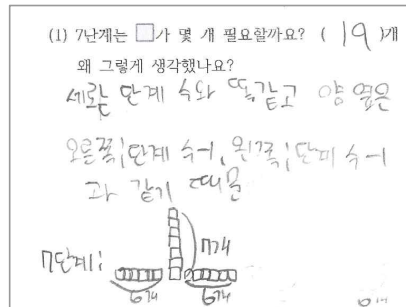 (1) 7단계는 □가 몇 개 필요할까요? ( 19 )개
왜 그렇게 생각했나요?
세로는 단계 수와 똑같고 양 옆은
오른쪽;단계 수-1, 왼쪽;단계 수-1
과 같기 때문
7단계; 7개
6개 6개